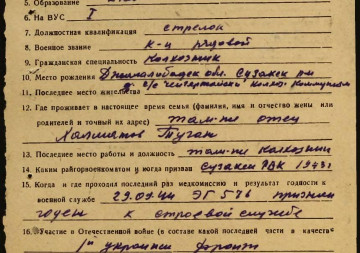 5. Образование
6. На ВУС I
7. Должностная квалификация стрелок
8. Военное звание к-ц рядовой
9. Гражданская специальность колхозник
10. Место рождения Джалалабадск обл. Сузакск рн
11. Последнее место жительства с/с колхоз Коммунизм
12. Где проживает в настоящее время семья (фамилия, имя и отчество жены или
родителей и точный их адрес) там-же отец
Халматов Туган
13. Последнее место работы и должность там-же колхозник
14. Каким райгорвоенкоматом и когда призван Сузакск РВК 1943г
15. Когда и где проходил последний раз медкомиссию и результат годности к
военной службе 29.07.44 ЭГ 576 признан
годен к строевой службе
16. Участие в Отечественной войне (в составе какой последней части и в качестве
1й украински фронт